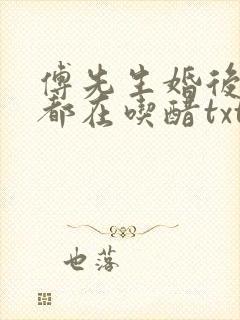 傅先生婚後
都在喫醋txt
也落